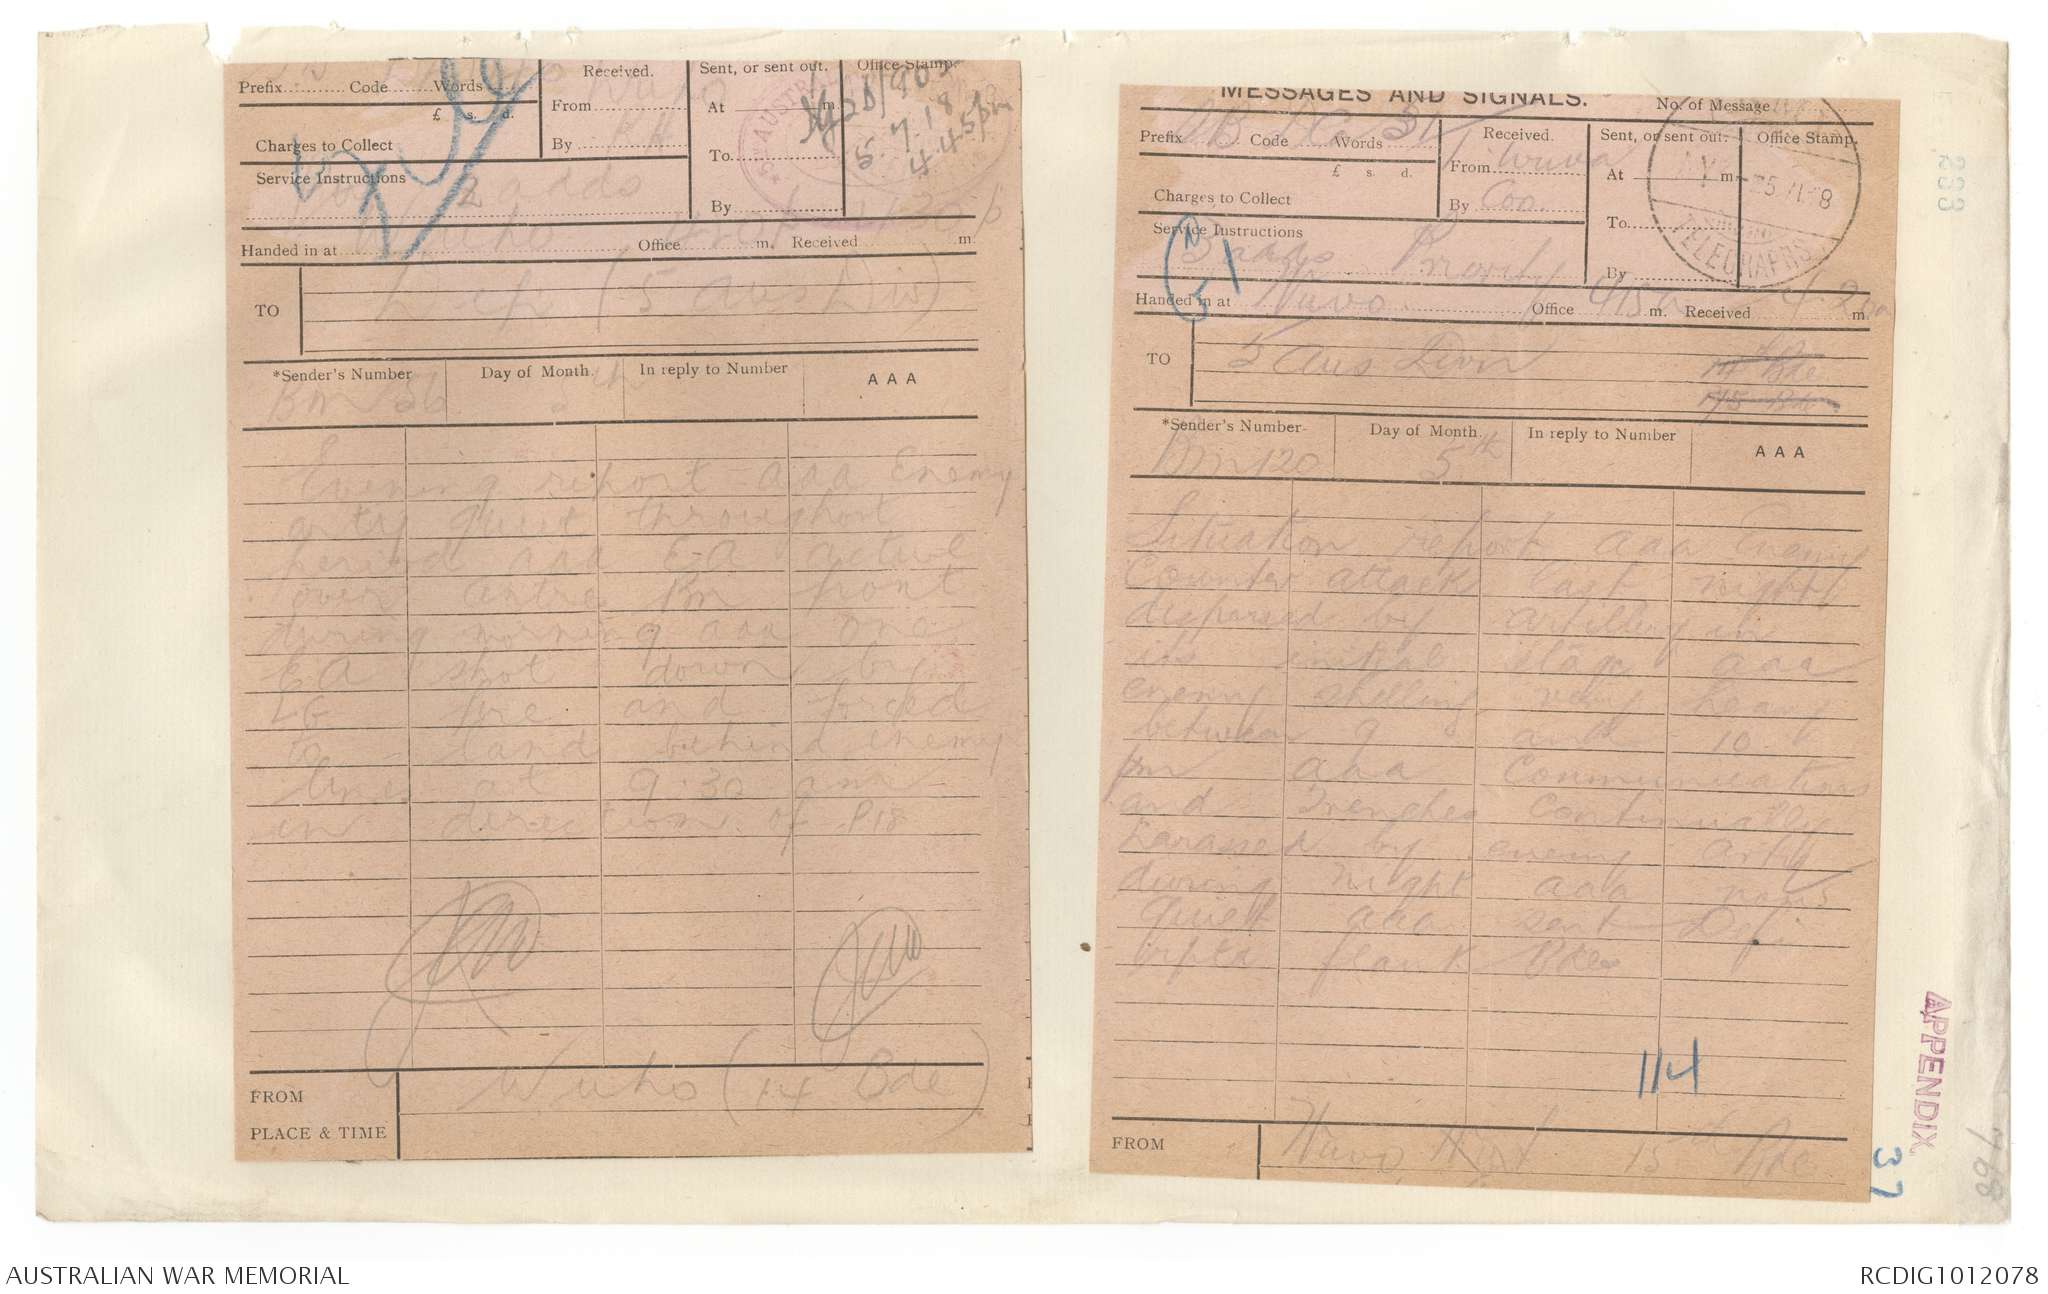 Prefix Code Words
£ s. d.
Charges to Collect
Service Instructions
2 adds
Received.
From
By
Sent, or sent out.
At m.
To
By
Office Stamp.
5.7.18
4.45pm
Handed in at Office m. Received m.
TO
(5 Aus Div)
*Sender's Number
Day of Month.
In reply to Number
AAA
Evening report aaa Enemy
arty quiet throughout
period aaa E.A active
over entire Bn front
during morning aaa one
EA shot down by
LG fire and forced
to land behind enemy
lines at 9.30 am
in direction of P18
FROM
PLACE & TIME
Wuho (14 Bde)
MESSAGES AND SIGNALS.
No. of Message
Prefix Code Words
£ s. d.
Charges to Collect
Service Instructions
3 adds Priority
Received.
From
By
Sent, or sent out.
At m.
To
By
Office Stamp.
TELEGRAPHS
Handed in at Nuvo Office 415a m. Received 4.20a m.
TO
5 Aus Divn
*Sender's Number
Day of Month.
In reply to Number
AAA
Bm 120
5th
Situation report aaa Enemy
Counter attack last night
dispersed by artillery in
its initial stage aaa
enemy shelling very heavy
between 9 and 10
pm aaa Communications
and Trenches continually
harassed by enemy arty
during night aaa now
quiet aaa sent Def
rptd flank Bdes
114
FROM
Nuvo 15th Bde
APPENDIX
37
788
AUSTRALIAN WAR MEMORIAL
RCDIG1012078